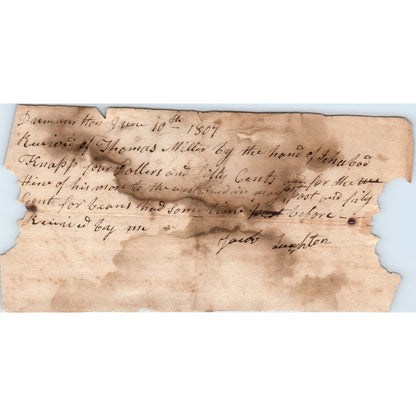 Dummerston June 10th 1807
Receivd of Thomas Miller by the hand of Ichabod
Knapp four Dollers and fifty Cents for the
time of his to the and in post and fifty
Cents for beans had some time before —
Received by me
Jacob Laughton